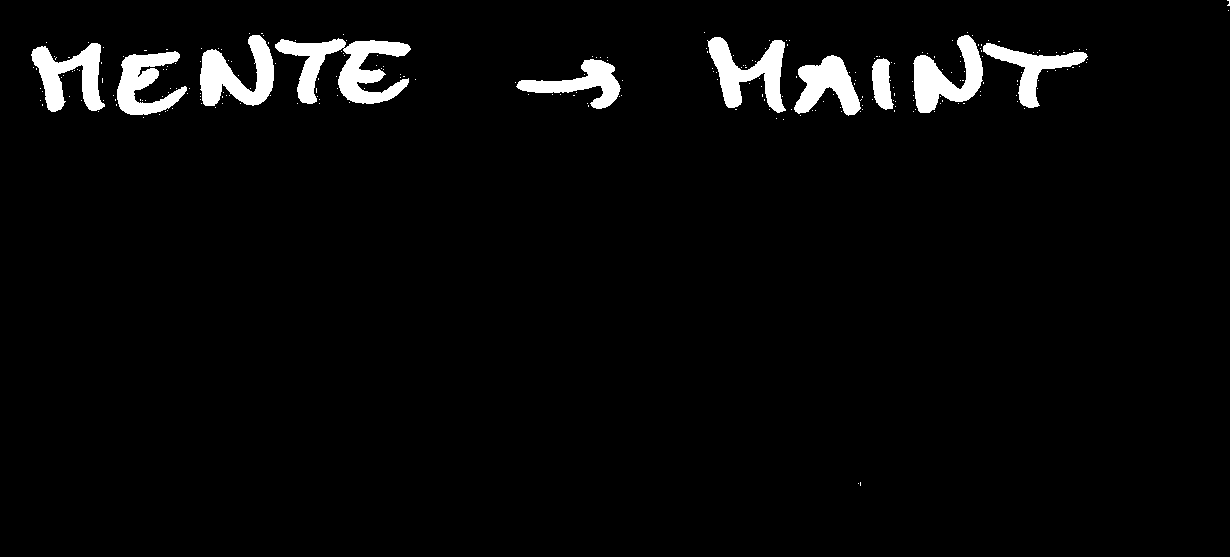 MENTE → MAINT